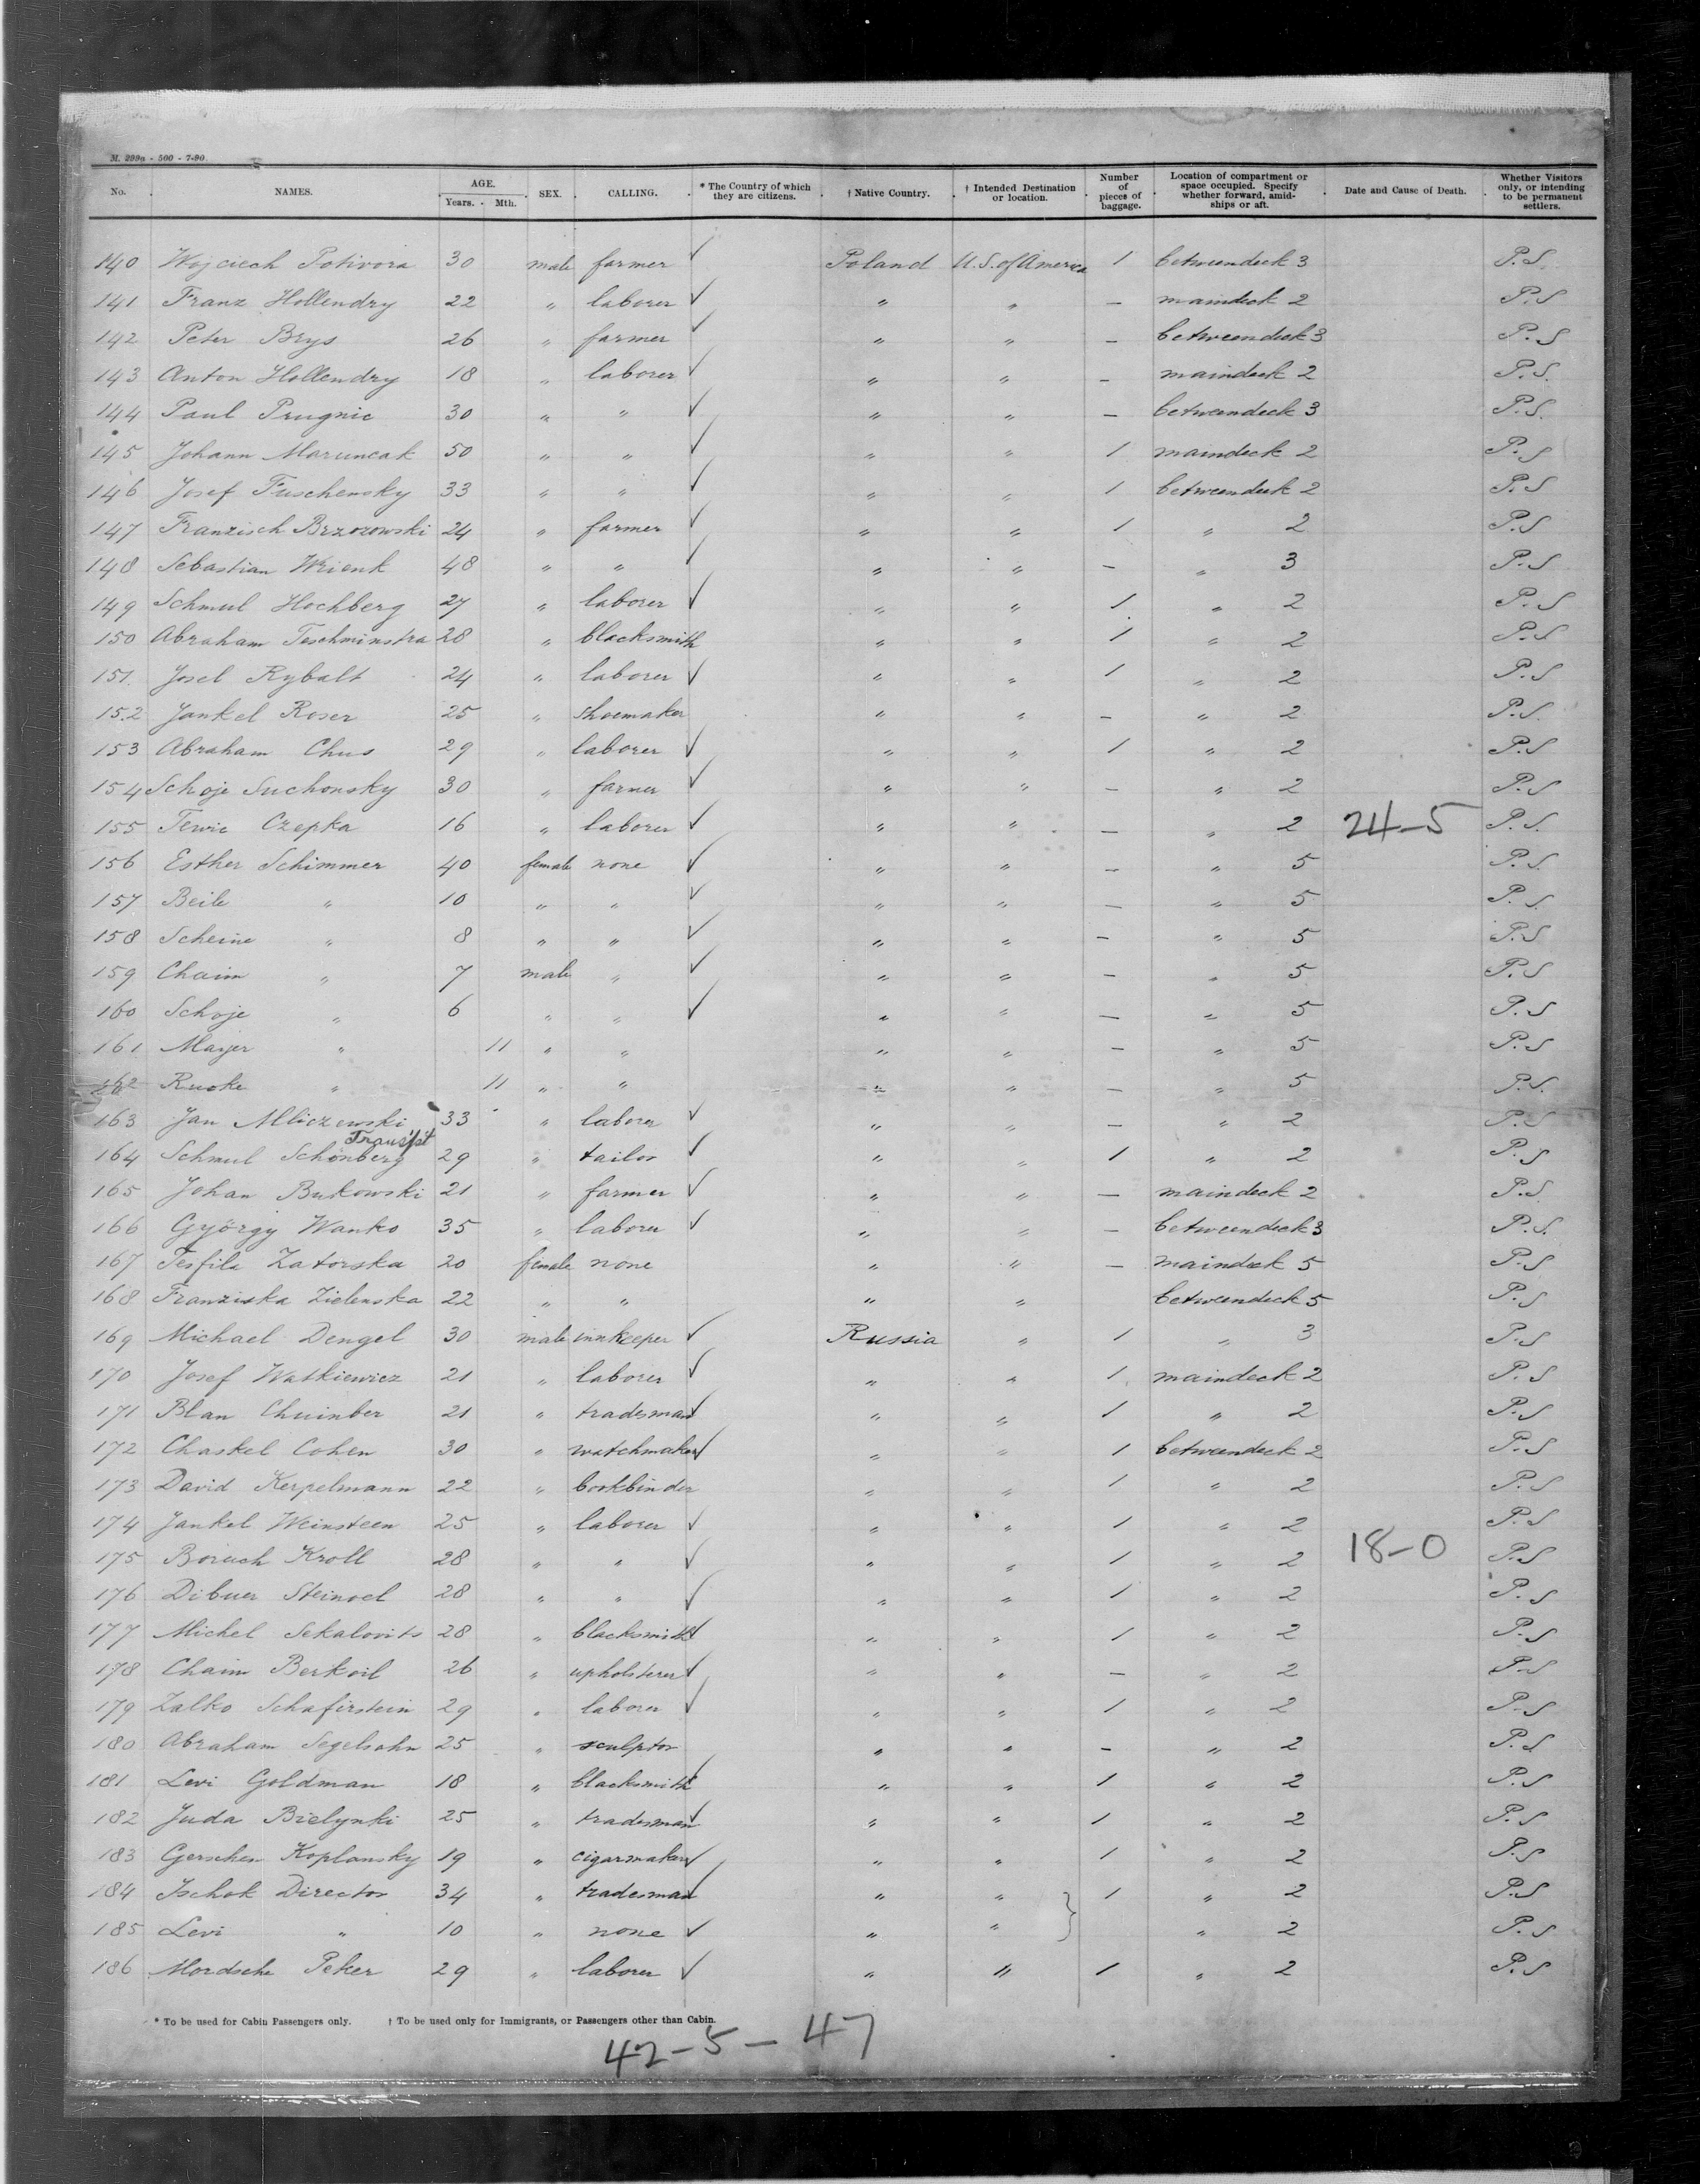 M. 299a - 500 - 7-90.
No. NAMES. AGE. Years. Mth. SEX. CALLING. * The Country of which they are citizens. † Native Country. † Intended Destination or location. Number of pieces of baggage. Location of compartment or space occupied. Specify whether forward, amidships or aft. Date and Cause of Death. Whether Visitors only, or intending to be permanent settlers.
140 Wojciech Potivora 30 male farmer ✓ Poland U.S. of America 1 betweendeck 3 P.S.
141 Franz Hollendry 22 " laborer ✓ " " — maindeck 2 P.S
142 Peter Brys 26 " farmer ✓ " " — betweendeck 3 P.S
143 Anton Hollendry 18 " laborer ✓ " " — maindeck 2 P.S.
144 Paul Prugnic 30 " " ✓ " " — betweendeck 3 P.S.
145 Johann Maruncak 50 " " ✓ " " 1 maindeck 2 P.S
146 Josef Fuschensky 33 " " ✓ " " 1 betweendeck 2 P.S
147 Franzisch Brzozowski 24 " farmer ✓ " " 1 " 2 P.S
148 Sebastian Wrienk 48 " " ✓ " " — " 3 P.S
149 Schmul Hochberg 27 " laborer ✓ " " 1 " 2 P.S
150 Abraham Teschminstra 28 " blacksmith " " 1 " 2 P.S
151. Josel Rybalt 24 " laborer ✓ " " 1 " 2 P.S
152 Jankel Roser 25 " shoemaker " " — " 2 P.S.
153 Abraham Chus 29 " laborer ✓ " " 1 " 2 P.S
154 Schoje Suchonsky 30 " farmer ✓ " " — " 2 P.S
155 Tewie Czepka 16 " laborer ✓ " " — " 2 24-5 P.S.
156 Esther Schimmer 40 female none ✓ " " — " 5 P.S.
157 Beile " 10 " " ✓ " " — " 5 P.S.
158 Scheine " 8 " " ✓ " " — " 5 P.S
159 Chaim " 7 male " ✓ " " — " 5 P.S
160 Schoje " 6 " " ✓ " " — " 5 P.S
161 Mayer " 11 " " " " — " 5 P.S
162 Ruske " 11 " " " " — " 5 P.S.
163 Jan Mliczewski 33 " laborer ✓ " " — " 2 P.S
164 Schmul Schönberg 29 " tailor ✓ " " 1 " 2 P.S
165 Johan Bukowski 21 " farmer ✓ " " — maindeck 2 P.S.
166 György Wanko 35 " laborer ✓ " " — betweendeck 3 P.S.
167 Tesfila Zatorska 20 female none " " — maindeck 5 P.S
168 Franziska Zielenska 22 " " " " betweendeck 5 P.S
169 Michael Dengel 30 male innkeeper ✓ Russia " 1 " 3 P.S
170 Josef Watkiewicz 21 " laborer ✓ " " 1 maindeck 2 P.S
171 Blan Chuinber 21 " tradesman ✓ " " 1 " 2 P.S
172 Chaskel Cohen 30 " watchmaker ✓ " " 1 betweendeck 2 P.S
173 David Kerpelmann 22 " bookbinder " " 1 " 2 P.S
174 Jankel Weinsteen 25 " laborer ✓ " " 1 " 2 P.S
175 Boruch Kroll 28 " " ✓ " " 1 " 2 18-0 P.S
176 Dibuer Steinoel 28 " " ✓ " " 1 " 2 P.S
177 Michel Sekalovits 28 " blacksmith ✓ " " 1 " 2 P.S
178 Chaim Berkoil 26 " upholsterer ✓ " " — " 2 P.S
179 Zalko Schafirstein 29 " laborer ✓ " " 1 " 2 P.S
180 Abraham Segelsohn 25 " sculptor " " — " 2 P.S.
181 Levi Goldman 18 " blacksmith ✓ " " 1 " 2 P.S
182 Juda Bielynki 25 " tradesman ✓ " " 1 " 2 P.S
183 Gerschen Koplansky 19 " cigarmaker ✓ " " 1 " 2 P.S
184 Ischok Director 34 " tradesman ✓ " " } 1 " 2 P.S
185 Levi " 10 " none ✓ " " " 2 P.S
186 Mordsche Peker 29 " laborer ✓ " " 1 " 2 P.S
* To be used for Cabin Passengers only. † To be used only for Immigrants, or Passengers other than Cabin.
42-5-47